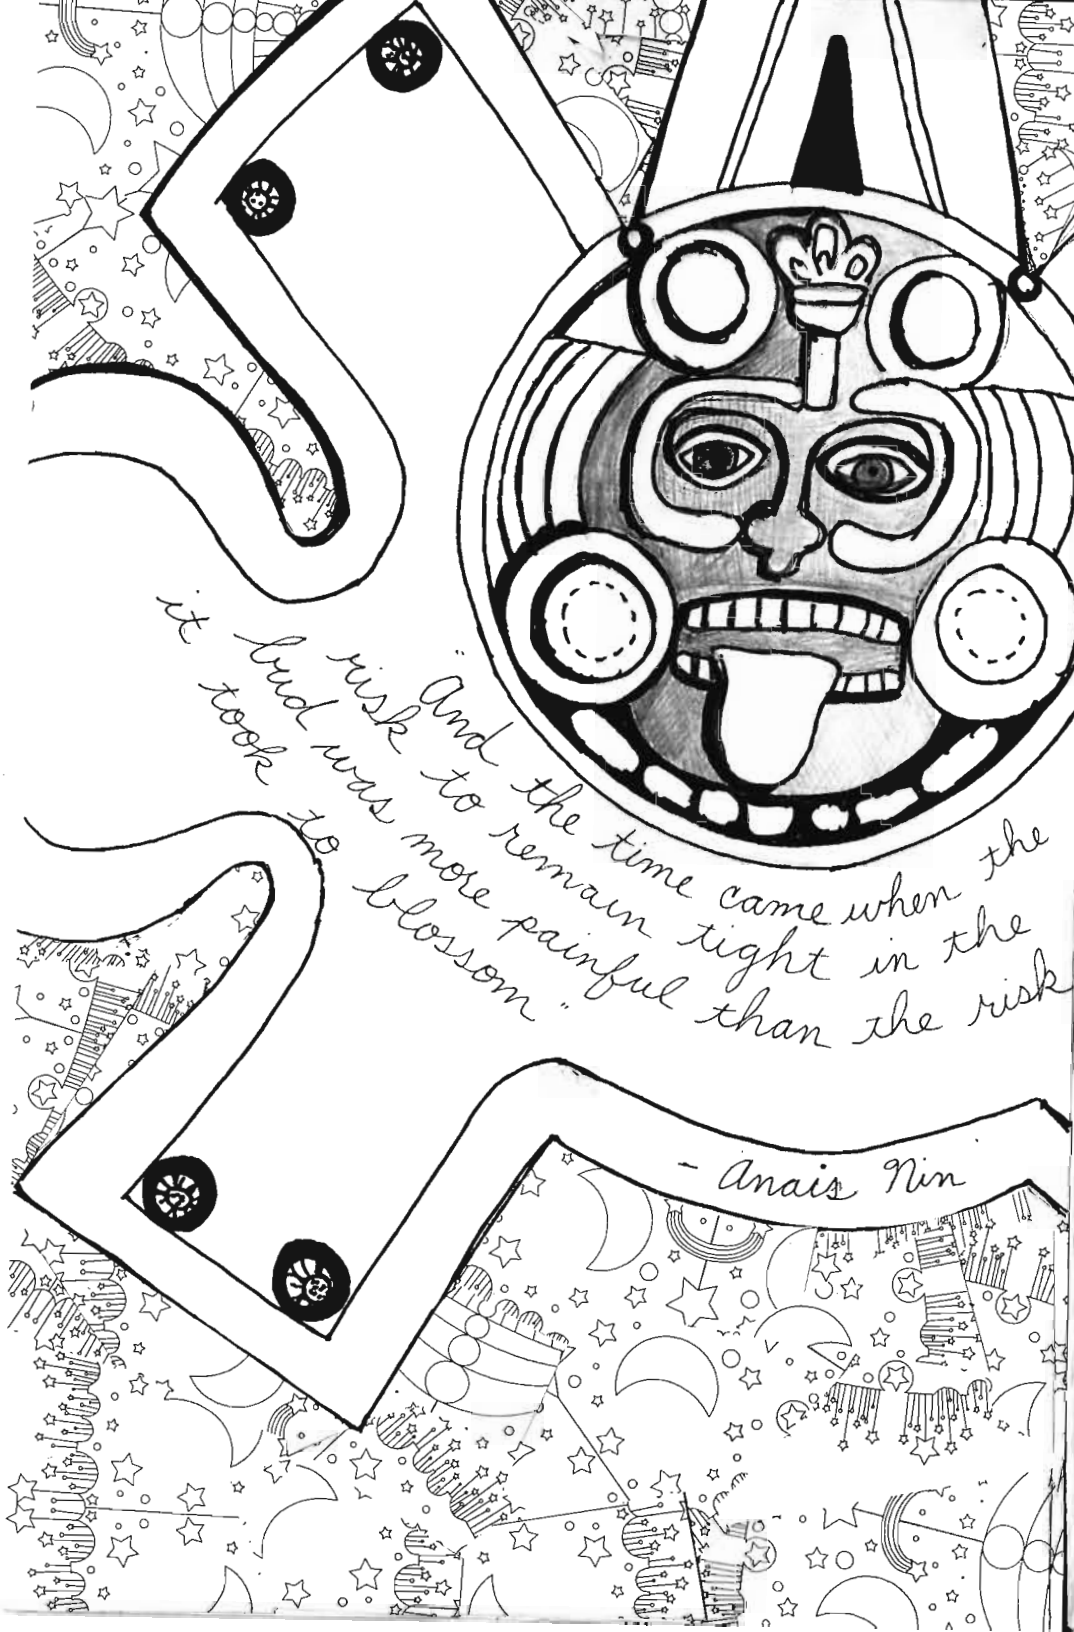 "And the time came when the
risk to remain tight in the
bud was more painful than the risk
it took to blossom"
- Anais Nin